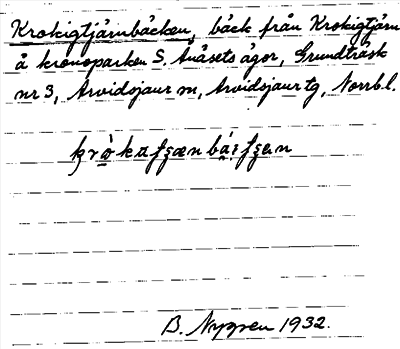 Krokigtjärnbäcken, bäck från Krokigtjärn
å kronoparken S. Avåsets ägor, Grundträsk
nr 3, Arvidsjaur m, Arvidsjaur tg, Norrb.l.
B. Nygren 1932.